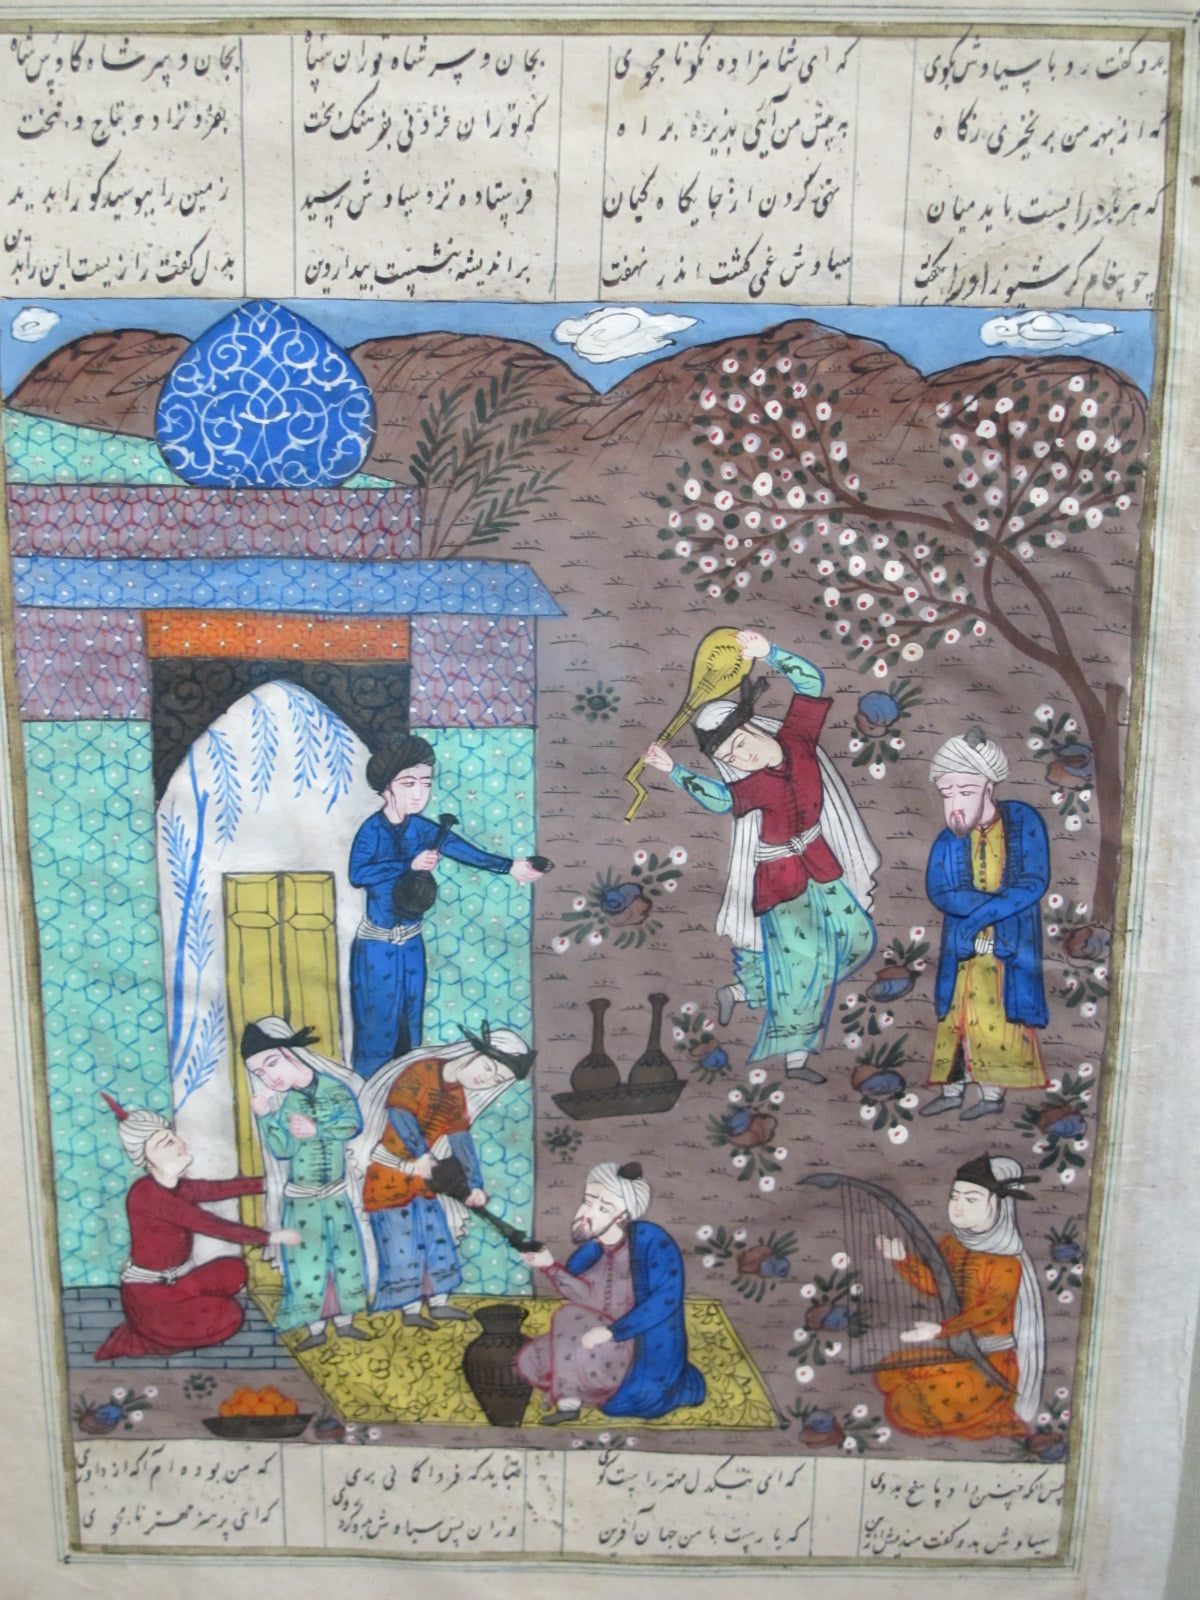 بدو گفت رو با سیاوش بگوی که ای شاهزاده نکو نامجوی بجان و سر شاه توران سپاه بجان و بسر شاه کاوس شاه
که از بهر من برنخیزی ز گاه به پیش من آیی پذیره براه که تو زان فزونی بفرهنگ و بخت بفر و نژاد و بتاج و بتخت
که هر باد را بست باید میان تهی کردن از جایگاه کیان فرستاده نزد سیاوش رسید زمین را ببوسید کو را بدید
چو پیغام کرسیوز او را بگفت سیاوش غمی گشت اندر نهفت بر اندیشه بنشست بیدار دیر بدل گفت رازیست این را
پس آنکه چنین داد پاسخ بدوی که ای نیکدل مهتر راست گوی نباید که فردا گمانی بری که من بوده‌ام آکه از داوری
سیاوش بدو گفت مندیش ازین که یارست با من جهان آفرین وزان پس سیاوش بدو گفت که ای پر هنر مهتر نامجوی